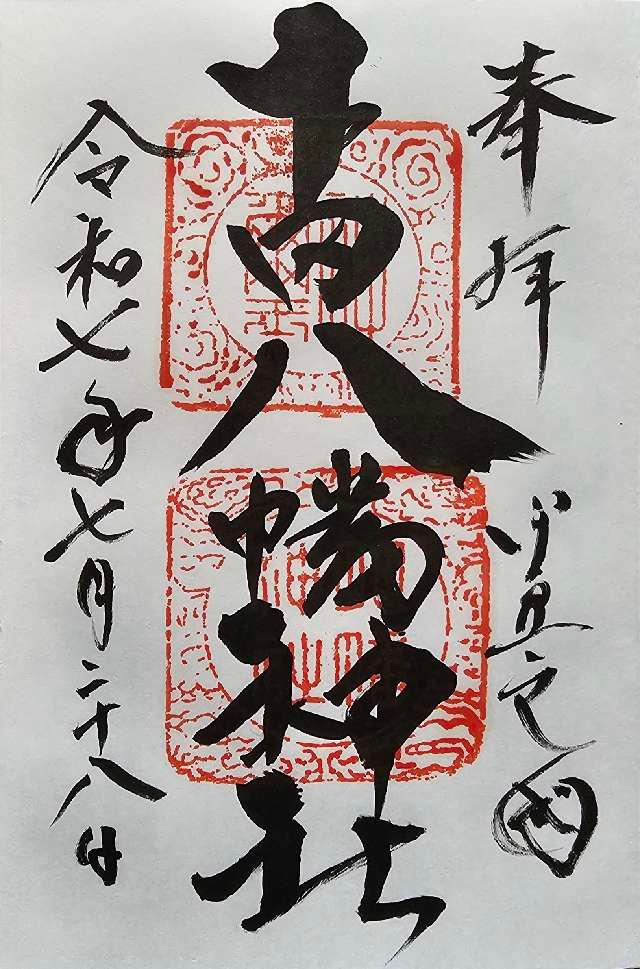 奉拝
小豆之国
八幡神社
令和七年七月二十八日